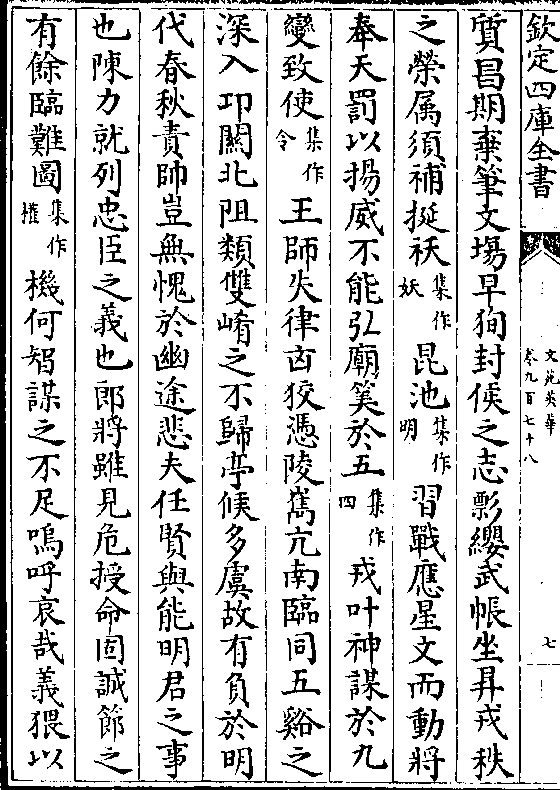 欽定四庫全書
文苑英華
卷九百七十八
七
質昌期棄筆文場早徇封侯之志彯纓武帳坐昇戎秩
之榮属須補挻祅集作妖昆池集作明習戰應星文而動將
奉天罰以揚威不能弘廟筭於五集作四戎叶神謀於九
變致使集作令王師失律凶狡憑陵嶲亢南臨同五谿之
深入邛關北阻類雙崤之不歸亭候多虞故有負於明
代春秋責帥豈無愧於幽途悲夫任賢與能明君之事
也陳力就列忠臣之義也郎將雖見危授命固誠節之
有餘臨難圖集作權機何智謀之不足嗚呼哀哉義猥以